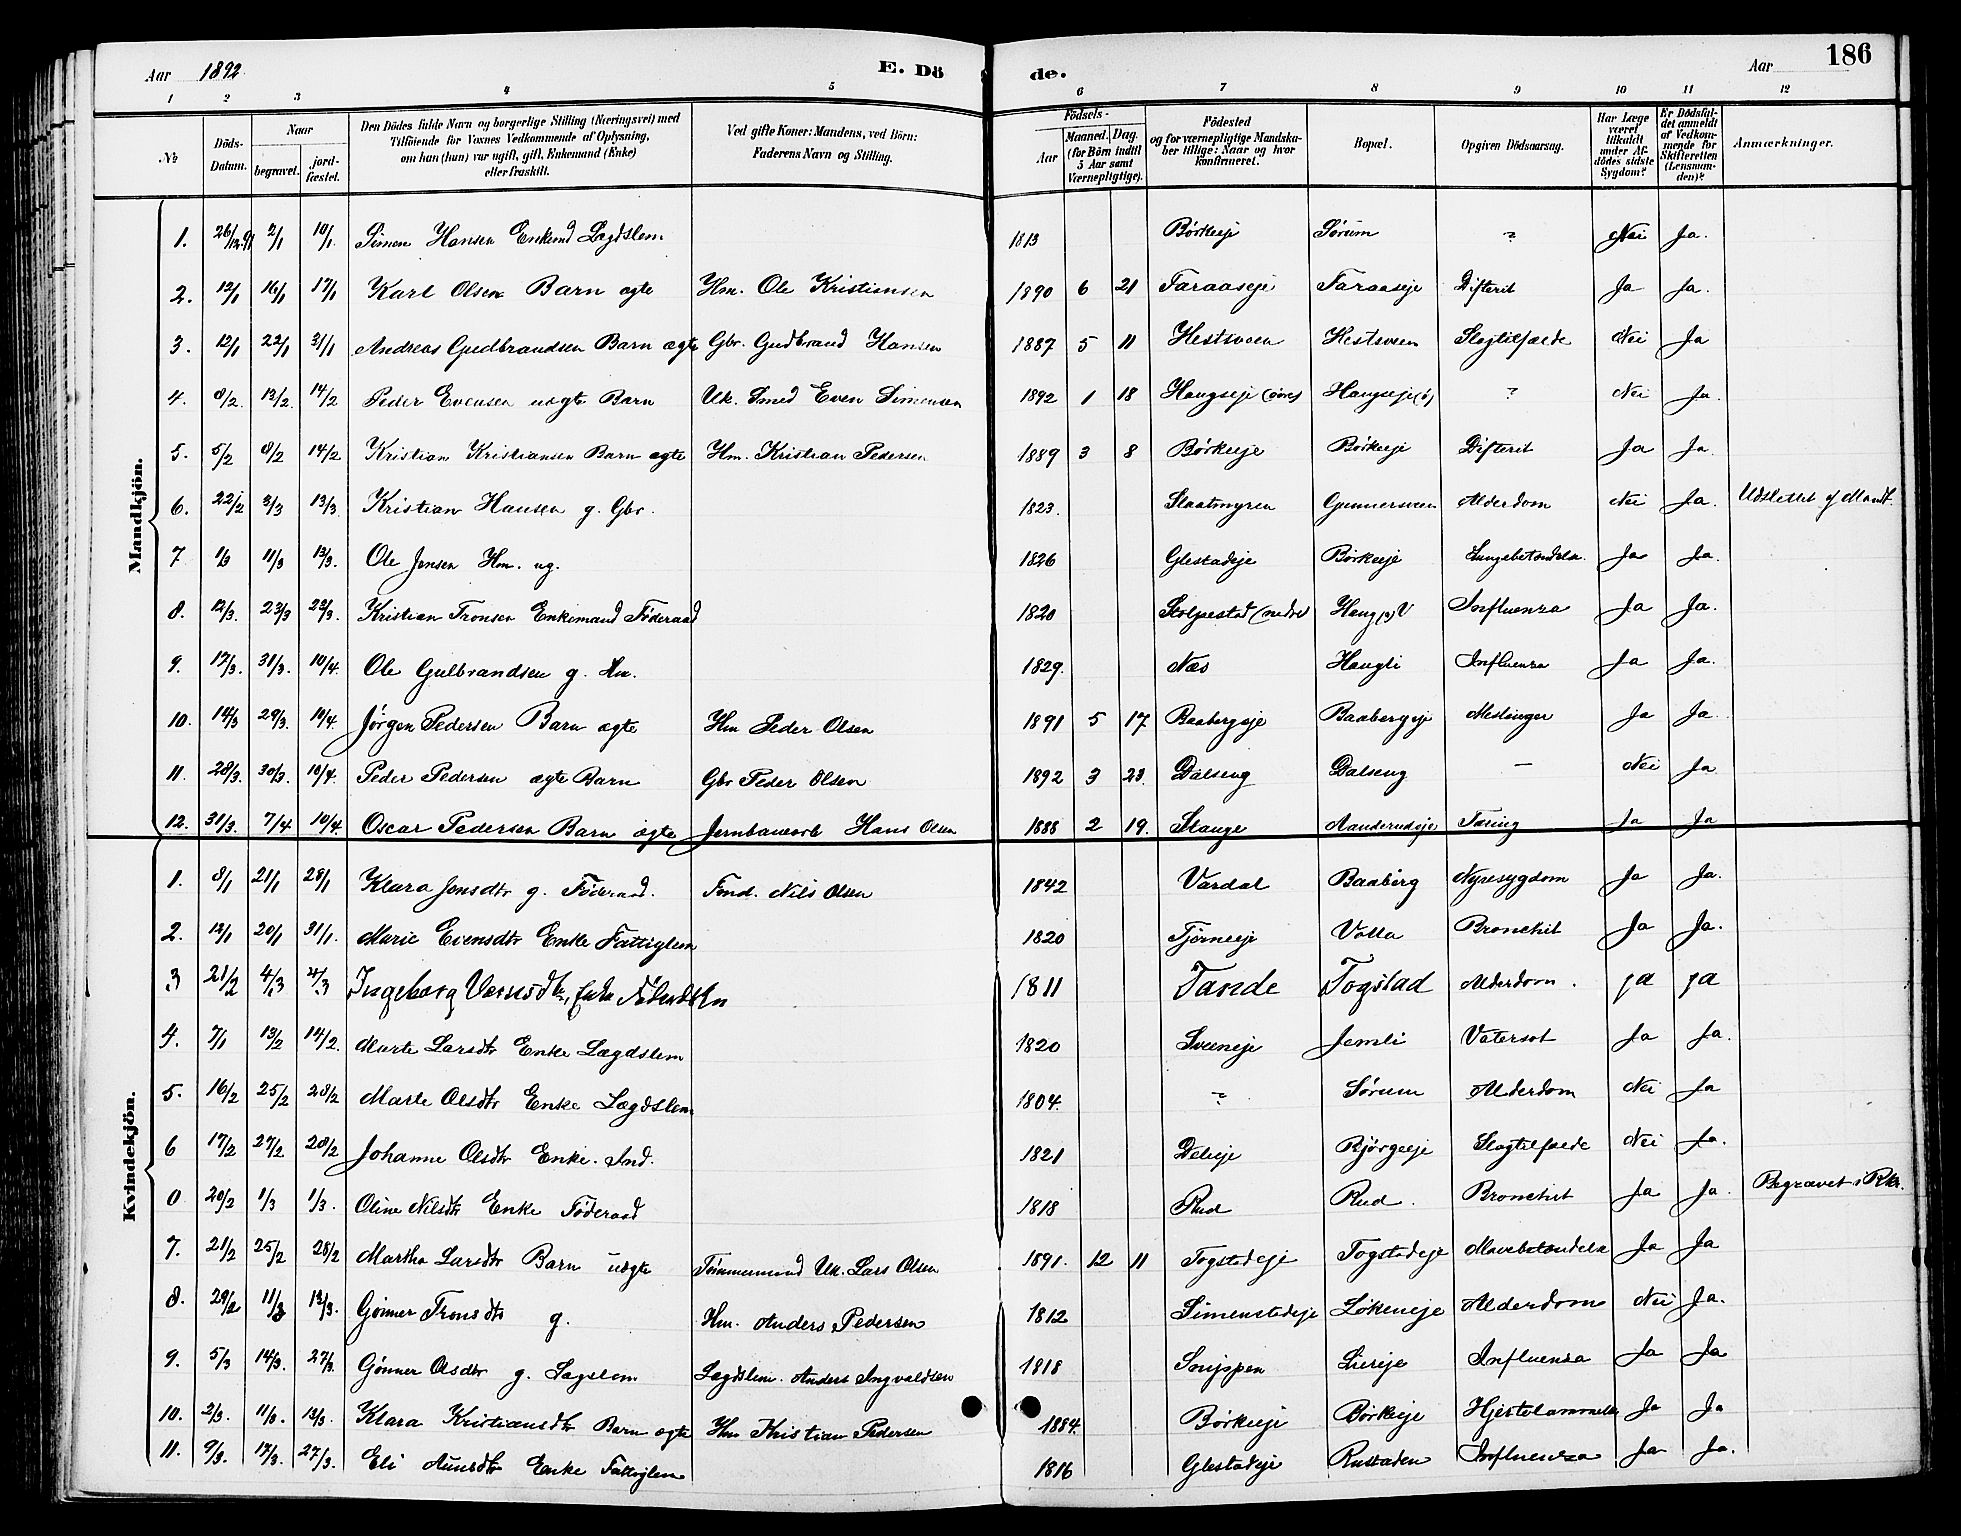 Aar 1892.
E. Dö
de.
Aar 186
1 2 3 4 5 6 7 8 9 10 11 12
№
Döds-Datum.
Naar
begravet.
jord-fæstet.
Den Dödes fulde Navn og borgerlige Stilling (Næringsvei) med Tilföiende for Voxnes Vedkommende af Oplysning, om han (hun) var ugift, gift, Enkemand (Enke) eller fraskilt.
Ved gifte Koner: Mandens, ved Börn: Faderens Navn og Stilling.
Födsels-
Aar
Maaned. Dag.
(for Börn indtil 5 Aar samt Værnepligtige).
Födested og for værnepligtige Mandskaber tillige: Naar og hvor konfirmeret.
Bopæl.
Opgiven Dödsaarsag.
Har Læge været tilkaldt under Afdödes sidste Sygdom?
Er Dödsfaldet anmeldt af Vedkommende for Skifteretten (Lensmanden)?
Anmærkninger.
Mandkjön.
1. 26/12 91 2/1 10/1 Simen Hansen Enkemd Lægdslem 1813 Børkeeje Sørum ? Nei Ja.
2. 12/1 16/1 17/1 Karl Olsen Barn ægte Hm. Ole Kristiansen 1890 6 21 Faraaseje Faraaseje Difterit Ja Ja.
3. 12/1 22/1 31/1 Andreas Gudbrandsen Barn ægte Gbr. Gudbrand Hansen 1887 5 11 Hestsveen Hestsveen Slagtilfælde Nei Ja
4. 8/2 13/2 14/2 Peder Evensen uægte Barn Uk. Smed Even Simensen 1892 1 18 Haugseje (øvre) Haugseje (ø) ? Nei Ja.
5. 5/2 8/2 14/2 Kristian Kristiansen Barn ægte Hm. Kristian Pedersen 1889 3 8 Børkeeje Børkeeje Difterit Ja Ja.
6. 22/2 3/3 13/3 Kristian Hansen g. Gbr. 1823. Slaatmyren Gunnersveen Alderdom Nei Ja. Udslettet af Mandt.
7 1/3 11/3 13/3 Ole Jensen Hm. ug. 1826 Glestadeje Børkeeje Lungebetændelse Ja Ja.
8. 12/3. 23/3 23/3. Kristian Tronsen Enkemand Föderaad 1820 Stolpestad (nedre) Haug (3) V Influenza Ja Ja.
9. 17/3. 31/3. 10/4. Ole Gulbrandsen g. Hm. 1829. Næs Haugli Influenza Ja Ja.
10. 14/3 29/3. 10/4. Jørgen Pedersen Barn ægte Hm Peder Olsen 1891 5 17. Baabergeje Baabergeje Meslinger Ja Ja.
11. 28/3. 30/3. 10/4. Peder Pedersen ægte Barn Gbr Peder Olsen 1892 3 23. Dalseng Dalseng — Nei Ja
12. 31/3. 7/4 10/4. Oscar Pedersen Barn ægte Jernbanearb Hans Olsen 1888 2 19. Stange Aanderudeje Tæring Ja Ja
Kvindekjön.
1. 8/1 21/1 28/1 Klara Jensdtr g. Föderaad. Fond. Nils Olsen 1842 Vardal Baaberg Nyresygdom Ja Ja.
2. 12/1 20/1 31/1. Marie Evensdtr Enke Fattiglem 1820 Tjerneeje Volla Bronchit Ja Ja.
3 21/2 4/3 4/3 Ingeborg 1811 Tande Togstad Alderdom. ja ja
4. 7/1 13/2 14/2. Marte Larsdtr Enke Lægdslem 1820 Sveeneje Jemli Vatersot Ja Ja.
5. 16/2 25/2 28/2 Marte Olsdtr Enke Lægdslem 1804. ? Sørum Alderdom Nei Ja
6 17/2 27/2 28/2 Johanne Olsdtr Enke. Ind. 1821 Delieje Bjørgeeje Slagtilfælde Nei Ja.
0 20/2 1/3 1/3. Oline Nilsdtr Enke Föderaad 1818 Rud Rud. Bronchit Ja Ja. Begravet i Rkr.
7. 21/2 25/2 28/2 Martha Larsdtr Barn uægte Tømmermand Uk. Lars Olsen 1891. 12 11 Togstadeje Togstadeje Mavebetændelse Ja Ja
8. 29/2 11/3 13/3. Gønner Tronsdtr g. Hm. Anders Pedersen 1812 Simenstadeje Løkeneje Alderdom Nei Ja.
9. 5/3 14/3. 27/3. Gønner Olsdtr g. Lægslem Lægdslem. Anders Ingvaldsen 1818 Snippen Lieeje Influenza Ja Ja
10. 2/3. 11/3. 13/3. Klara Kristiansdtr Barn ægte Hm Kristian Pedersen 1884. Børkeeje Børkeeje Hjertelammelse Ja Ja
11. 9/3. 17/3. 27/3. Eli Aunsdtr Enke Fattiglem 1816 Glestadeje Rustaden Influenza Ja Ja.